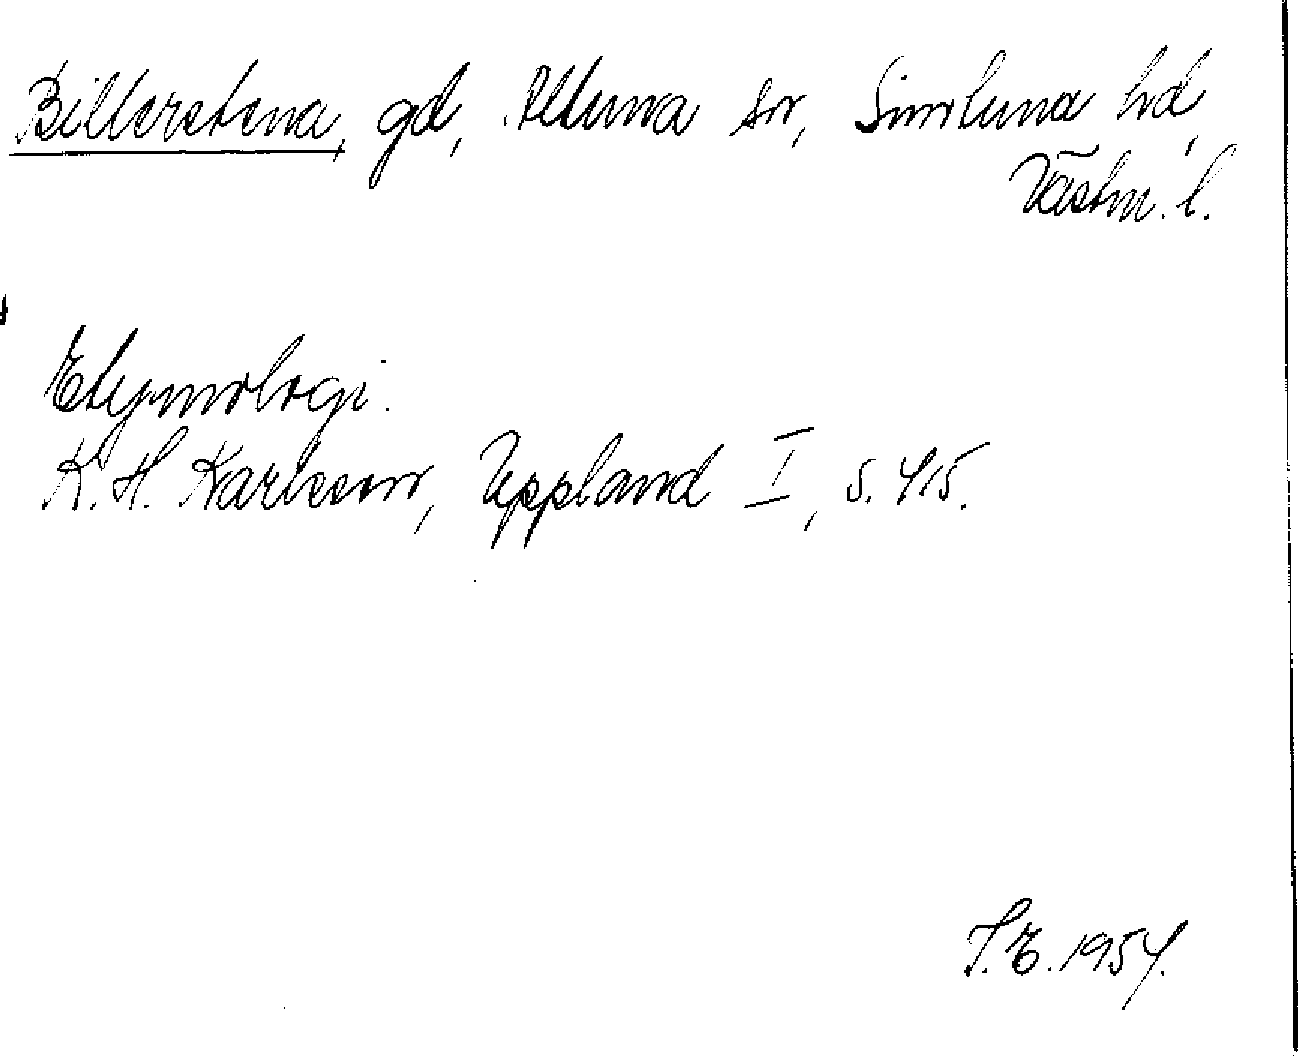 Billerstena, gd, Altuna sn, Simtuna hd,
Västm. l.
Etymologi.
K. H. Karlsson, Uppland I, s. 415.
J. E. 1954.